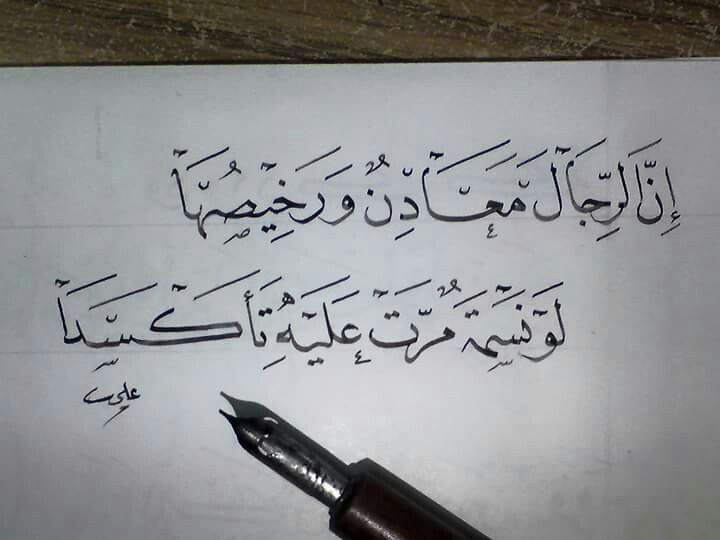 إِنَّ الرِّجَالَ مَعَادِنٌ وَرَخِيصُهَا
لَوْ نَسْمَةٌ مَرَّتْ عَلَيْهِ تَأَكْسَدَا
علي